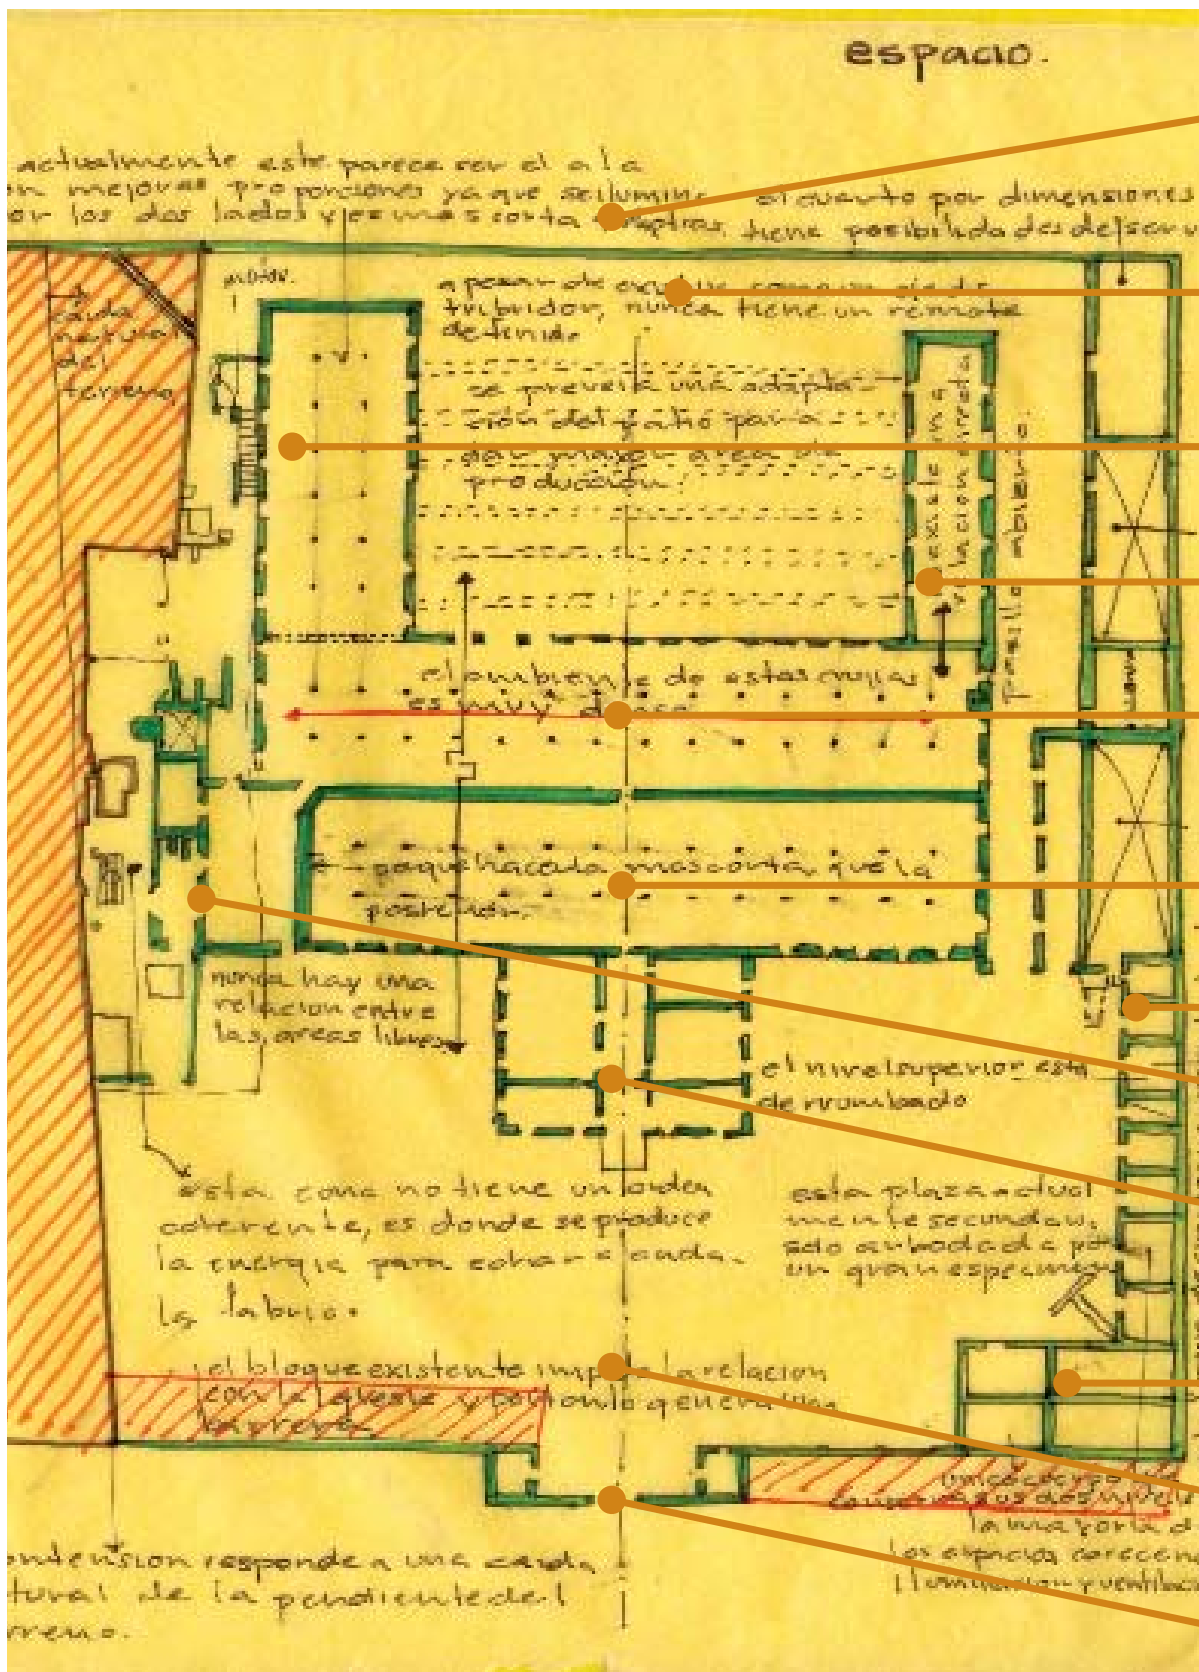 espacio.
actualmente este parece ser el ala
on mejores proporciones ya que se ilumin
or los dos lados y es mas corta
el cuarto por dimensiones
tiene posibilidades de serv
motor.
caida
natural
del
terreno
a pesar de
tribuidor, nunca tiene un remate
definido
se preveía una adapta
ción del patio para
dar mayor area de
producción.
existe una
relacion directa
pasillo abierto.
el ambiente de estas crujías
es muy
fachada mas corta, que la
posterior.
nunca hay una
relacion entre
las areas libres
el nivel superior esta
derrumbado
esta zona no tiene un orden
coherente, es donde se produce
la energia para echar a anda
la fabric.
esta plaza actual
mente secundar
un gran especimen
el bloque existente impide la relacion
con la y por tanto genera una
unico cuerpo
conserva sus dos
la mayoria d
los espacios carecen
iluminacion y ventilac
ontension responde a una caida
tural de la pendiente del
rreno.